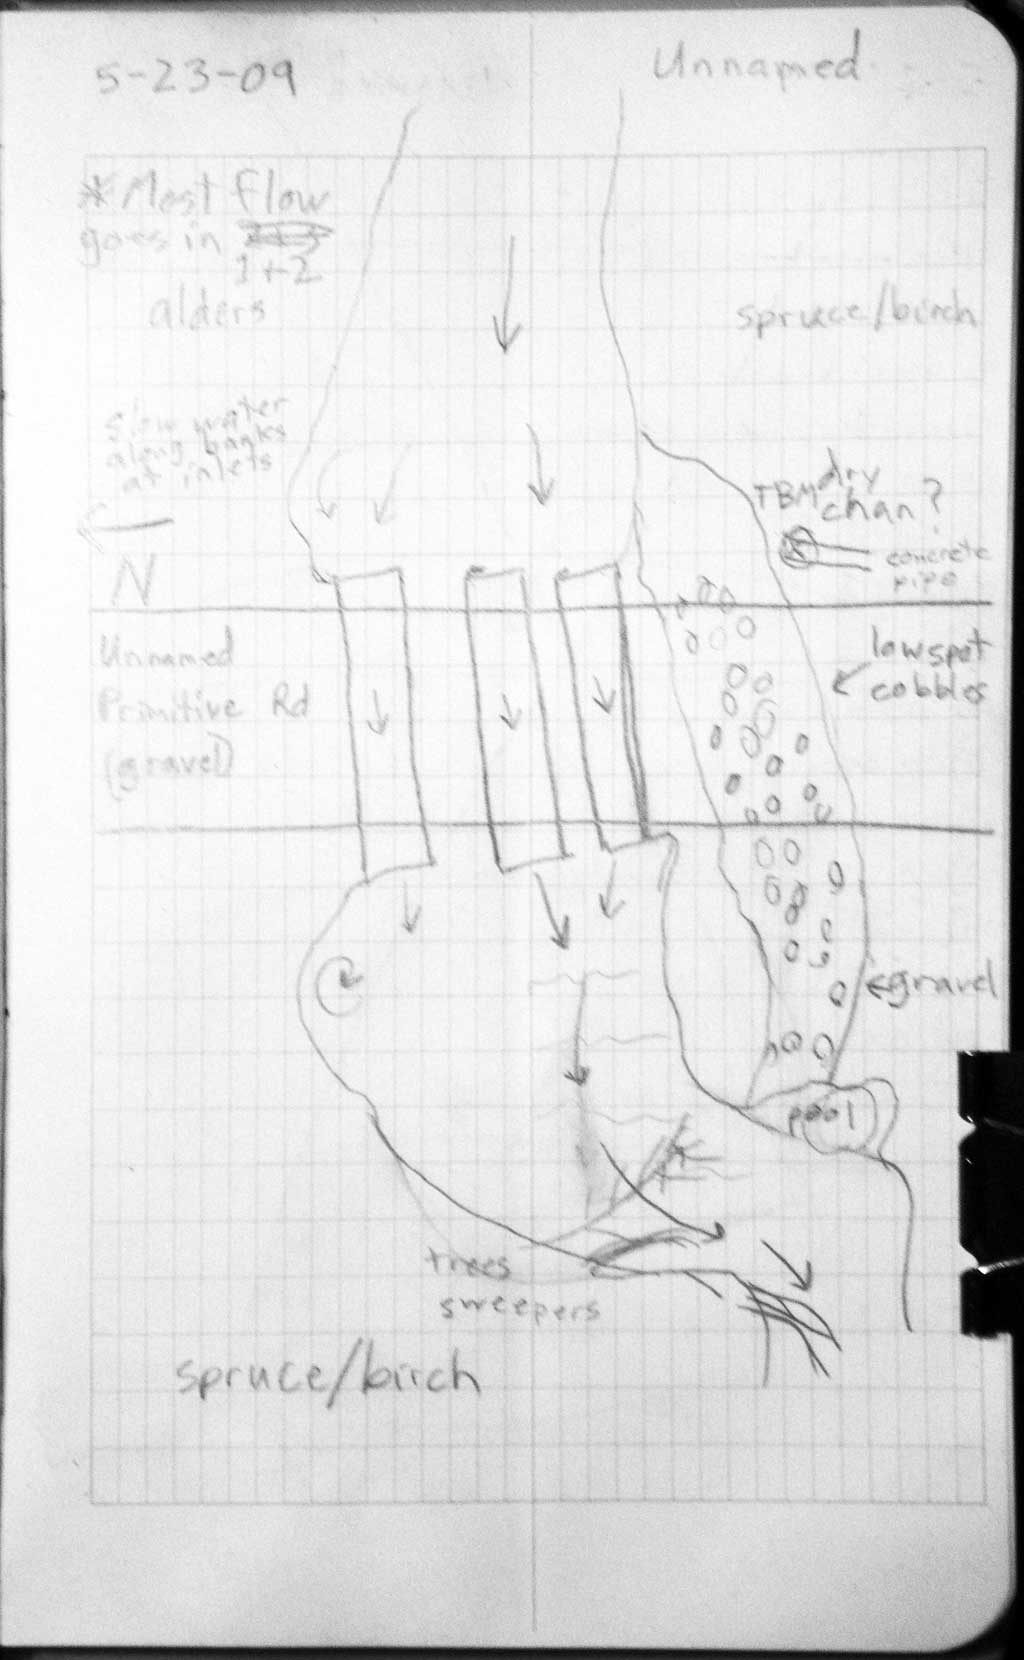 5-23-09
Unnamed
*Most flow
goes in
1+2
alders
spruce/birch
slow water
along banks
at inlets
N
TBM
dry
chan?
concrete
pipe
Unnamed
Primitive Rd
(gravel)
low spot
cobbles
gravel
pool
trees
sweepers
spruce/birch